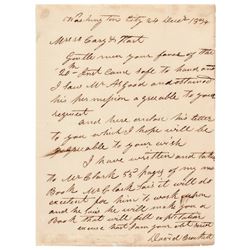 Washington City 24 Decr 1834
Messrs Cary & Hart
Gentle men your favor of the
20 Inst Came safe to hand and
I saw Mr Osgood and obtained
his permission agreeable to your
request
and here enclose his letter
to you which I hope will be
agreeable to your wish
I have written and taken
to Mr Clark pages of my
Book Mr Clark says it will do
excelent for him to work upon
and he says he will make you a
Book that will full
excuse I am your obt servt
David Crockett